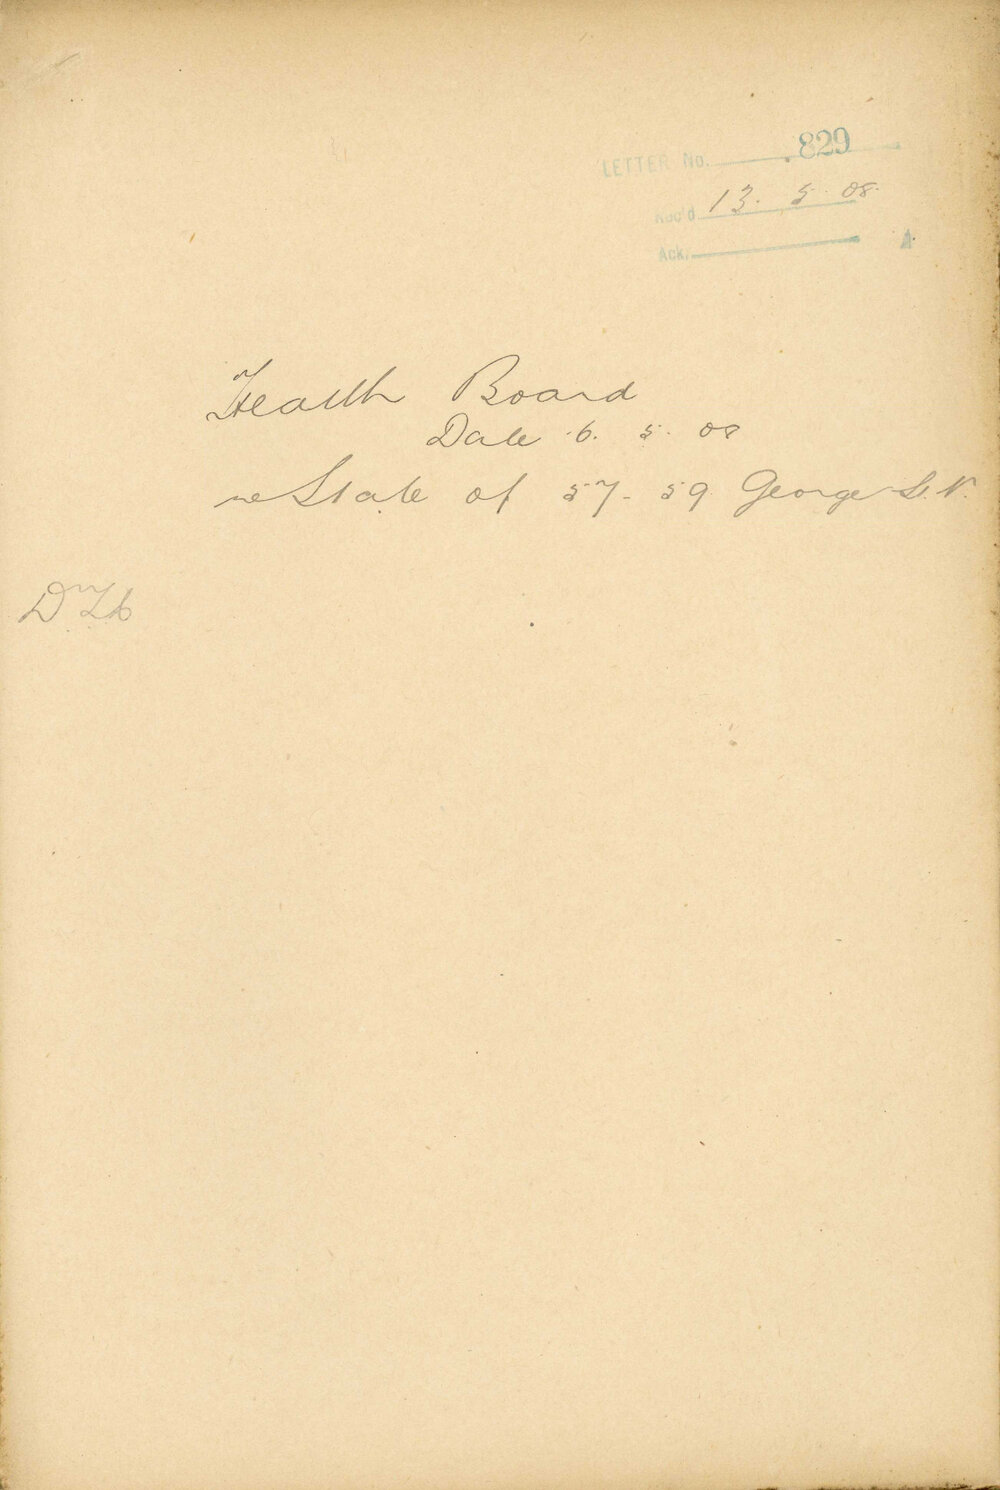 LETTER No. 829
Rec'd 13. 5. 08.
Ack.
Health Board
Date 6. 5. 08
re State of 57-59 George St. N.